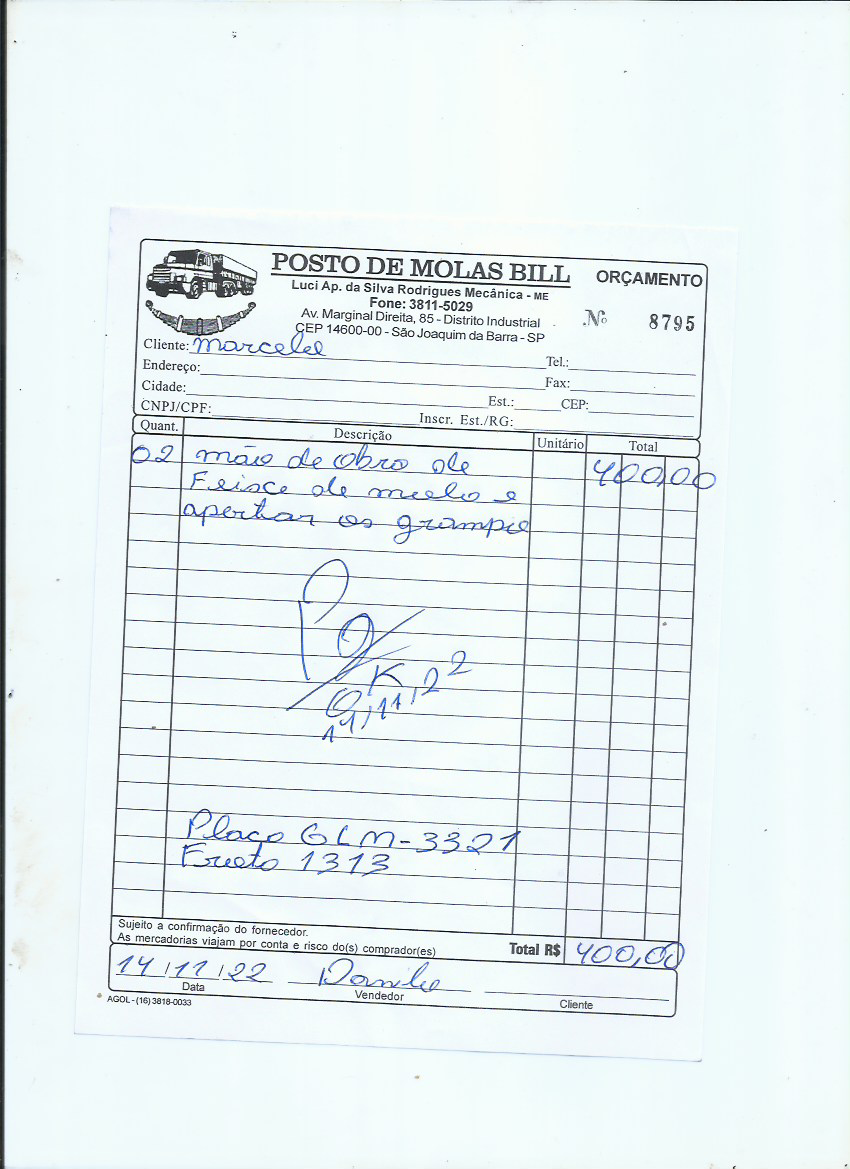 POSTO DE MOLAS BILL
ORÇAMENTO
Luci Ap. da Silva Rodrigues Mecânica - ME
Fone: 3811-5029
Av. Marginal Direita, 85 - Distrito Industrial
CEP 14600-00 - São Joaquim da Barra - SP
Nº 8795
Cliente: Marcelo
Tel.:
Endereço:
Fax:
Cidade:
Est.: CEP:
CNPJ/CPF:
Inscr. Est./RG:
Quant. Descrição Unitário Total
02 mão de obro de 400,00
Feisce de mielo e
apertar os grampo
OK
11,22
Placo GLM-3321
Frueto 1313
Sujeito a confirmação do fornecedor.
As mercadorias viajam por conta e risco do(s) comprador(es)
Total R$ 400,00
14/11/22 Danilo
Data Vendedor Cliente
AGOL - (16) 3818-0033